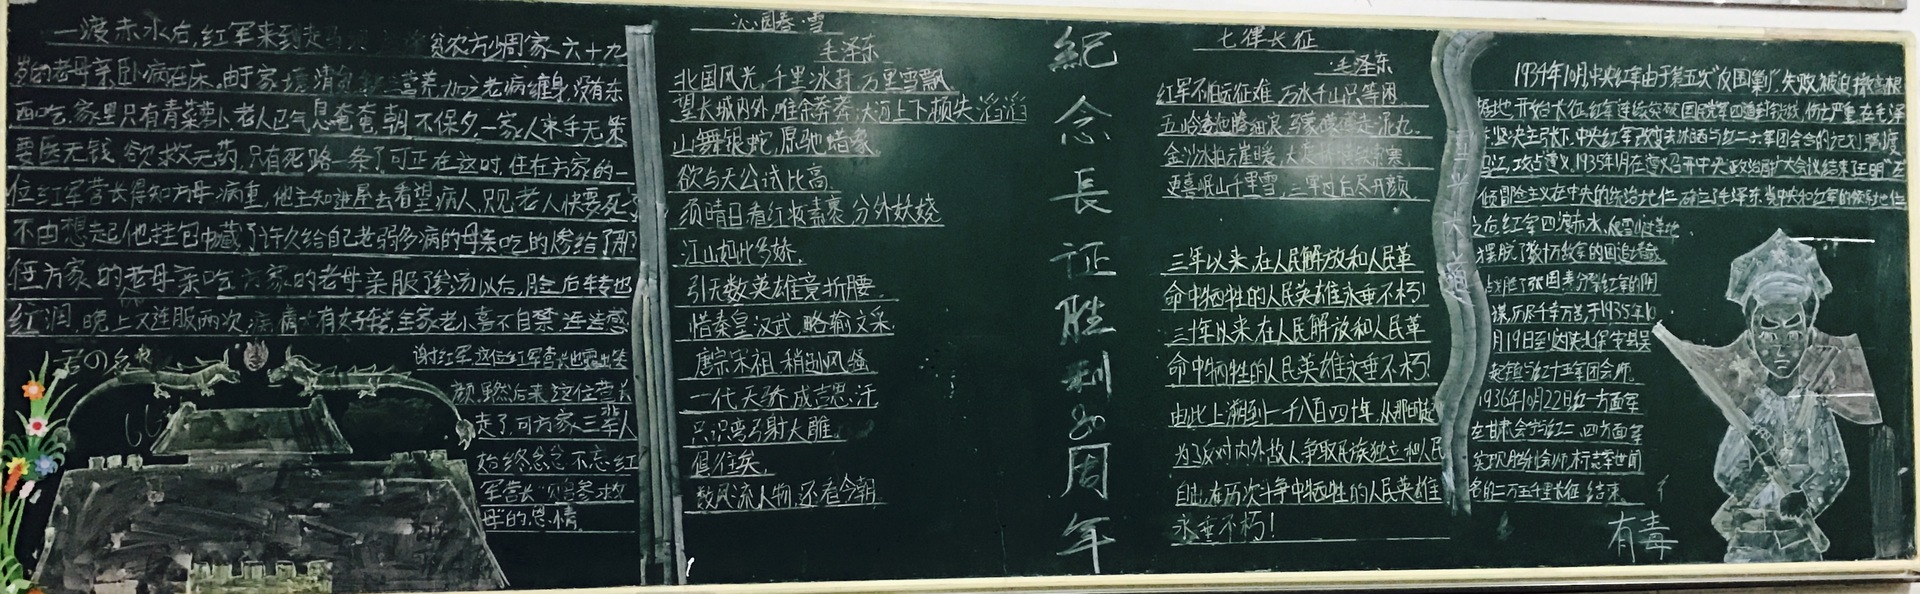 一渡赤水后,红军来到 贫农方少周家,六十九
岁的老母亲卧病在床。由于家境清贫 营养 加之老病缠身,没有东
西吃,家里只有青菜萝卜,老人已气息奄奄,朝不保夕,一家人束手无策
要医无钱 欲救无药,只有死路一条了可正在这时,住在方家的一
位红军营长得知方母病重,他主知进屋去看望病人,只见老人快要死了
不由想起他挂包中藏了许久给自己老弱多病的母亲吃的参给了那
任方家的老母亲吃 方家的老母亲服了参汤以后,脸后转也
红润,晚上又连服两次,病情大有好转全家老小喜不自禁,连连感
谢红军,这位红军营长也露出笑
颜,虽然后来这位营长
走了,可方家三辈人
始终念念不忘红
军营长“贝母参救
母”的恩情
沁园春·雪
毛泽东
北国风光,千里冰封,万里雪飘
望长城内外,唯余莽莽,大河上下顿失滔滔
山舞银蛇,原驰蜡象,
欲与天公试比高
须晴日看红妆素裹,分外妖娆
江山如此多娇,
引无数英雄竟折腰
惜秦皇汉武,略输文采,
唐宗宋祖,稍逊风骚
一代天骄,成吉思汗
只识弯弓射大雕
俱往矣,
数风流人物,还看今朝
紀念長证胜利80周年
七律长征
·毛泽东
红军不怕远征难,万水千山只等闲
五岭逶迤腾细浪,乌蒙磅礴走泥丸,
金沙水拍云崖暖,大度桥横铁索寒
更喜岷山千里雪,三军过后尽开颜
三年以来,在人民解放和人民革
命中牺牲的人民英雄永垂不朽!
三十年以来,在人民解放和人民革
命中牺牲的人民英雄永垂不朽!
由此上溯到一千八百四十年,从那时起
为了反对内外敌人,争取民族独立和人民
自由,在历次斗争中牺牲的人民英雄
永垂不朽!
1934年10月,中央红军由于第五次“反围剿”失败,被迫撤离根
据地,开始长征,红军连续突破国民党军四道封锁线,伤亡严重,在毛泽
东坚决主张下,中央红军改变去湘西与红二六军团会合的计划,强渡
乌江,攻占遵义。1935年1月在遵义召开中央政治局扩大会议结束王明“左
倾冒险主义在中央的统治地位 确立了毛泽东党中央和红军的领导地位
之后红军四渡赤水,爬雪山过草地
摆脱了数十万敌军的围追堵截
战胜了张国焘分裂红军的阴
谋,历尽千辛万苦于1935年10
月19日至达陕北保安县吴
起镇与红十五军团会师
1936年10月22日红一方面军
在甘肃会宁与红二、四方面军
实现胜利会师,标志举世闻
名的二万五千里长征 结束
有毒